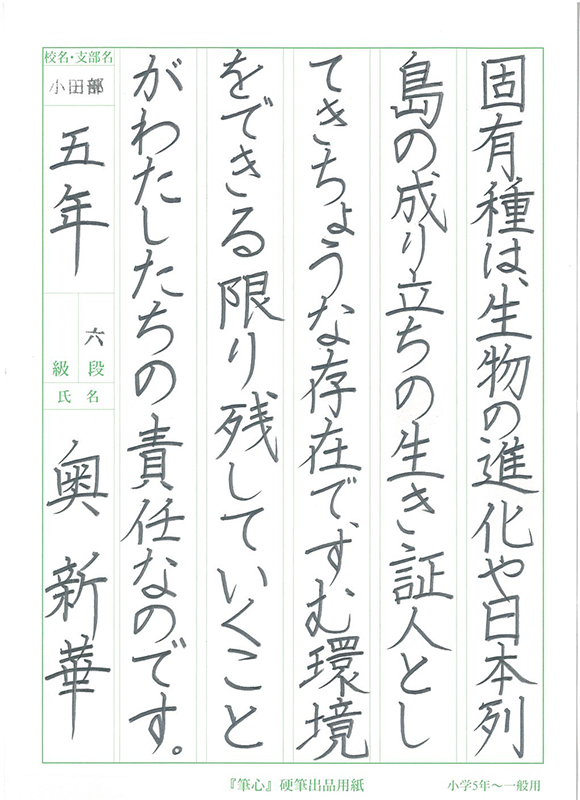 固有種は、生物の進化や日本列
島の成り立ちの生き証人とし
てきちょうな存在で、すむ環境
をできる限り残していくこと
がわたしたちの責任なのです。
校名・支部名
小田部
五年
六
級段
氏名
奥新華
『筆心』硬筆出品用紙
小学5年〜一般用